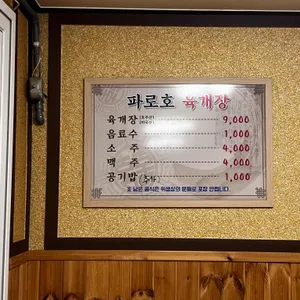 파로호 육개장
육개장 9,000
음료수 1,000
소 주 4,000
맥 주 4,000
공기밥 (추가) 1,000
남은 음식은 위생상의 문제로 포장 안됩니다.